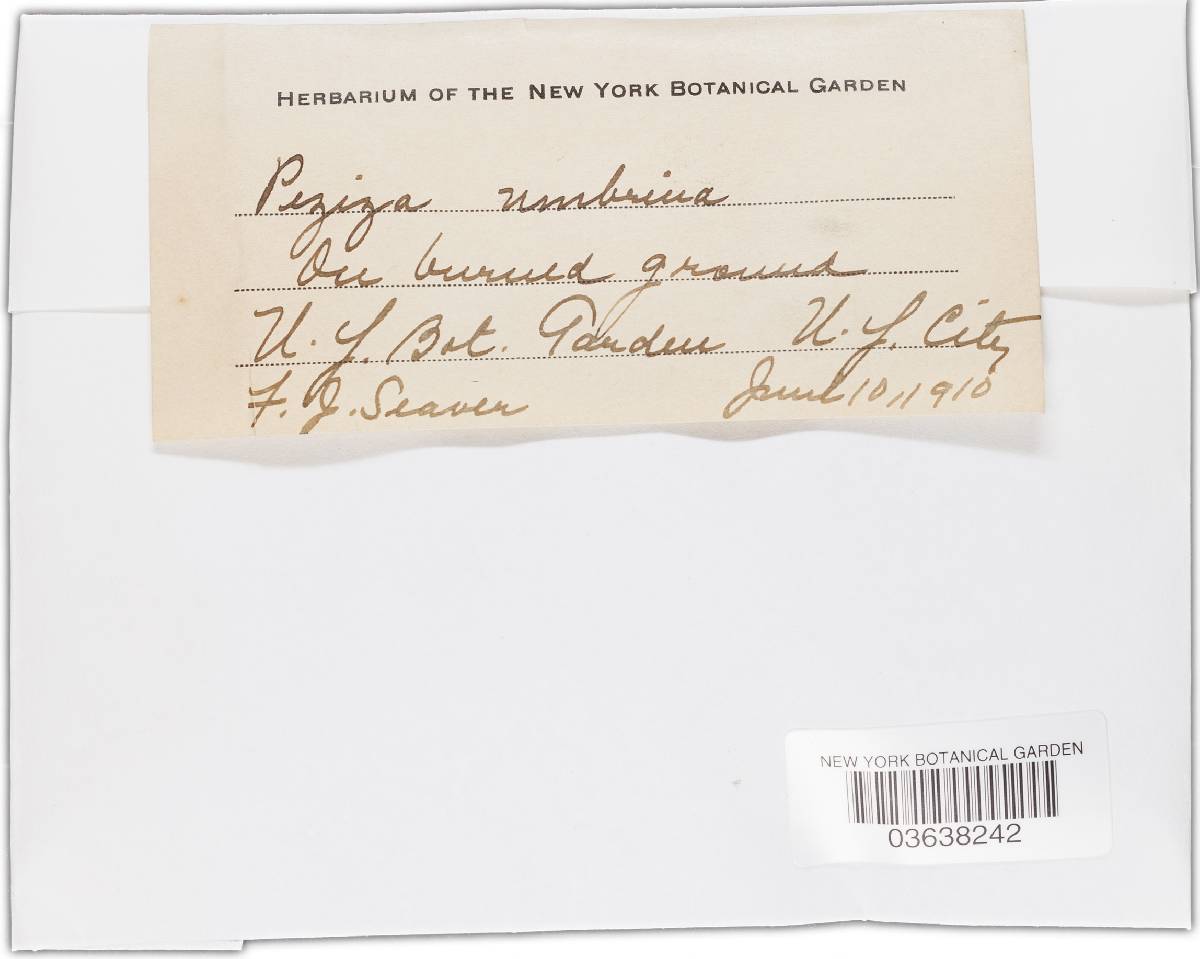 HERBARIUM OF THE NEW YORK BOTANICAL GARDEN
Peziza umbrina
On burned ground
N. Y. Bot. Garden N. Y. City
F. J. Seaver June 10, 1910
NEW YORK BOTANICAL GARDEN
03638242